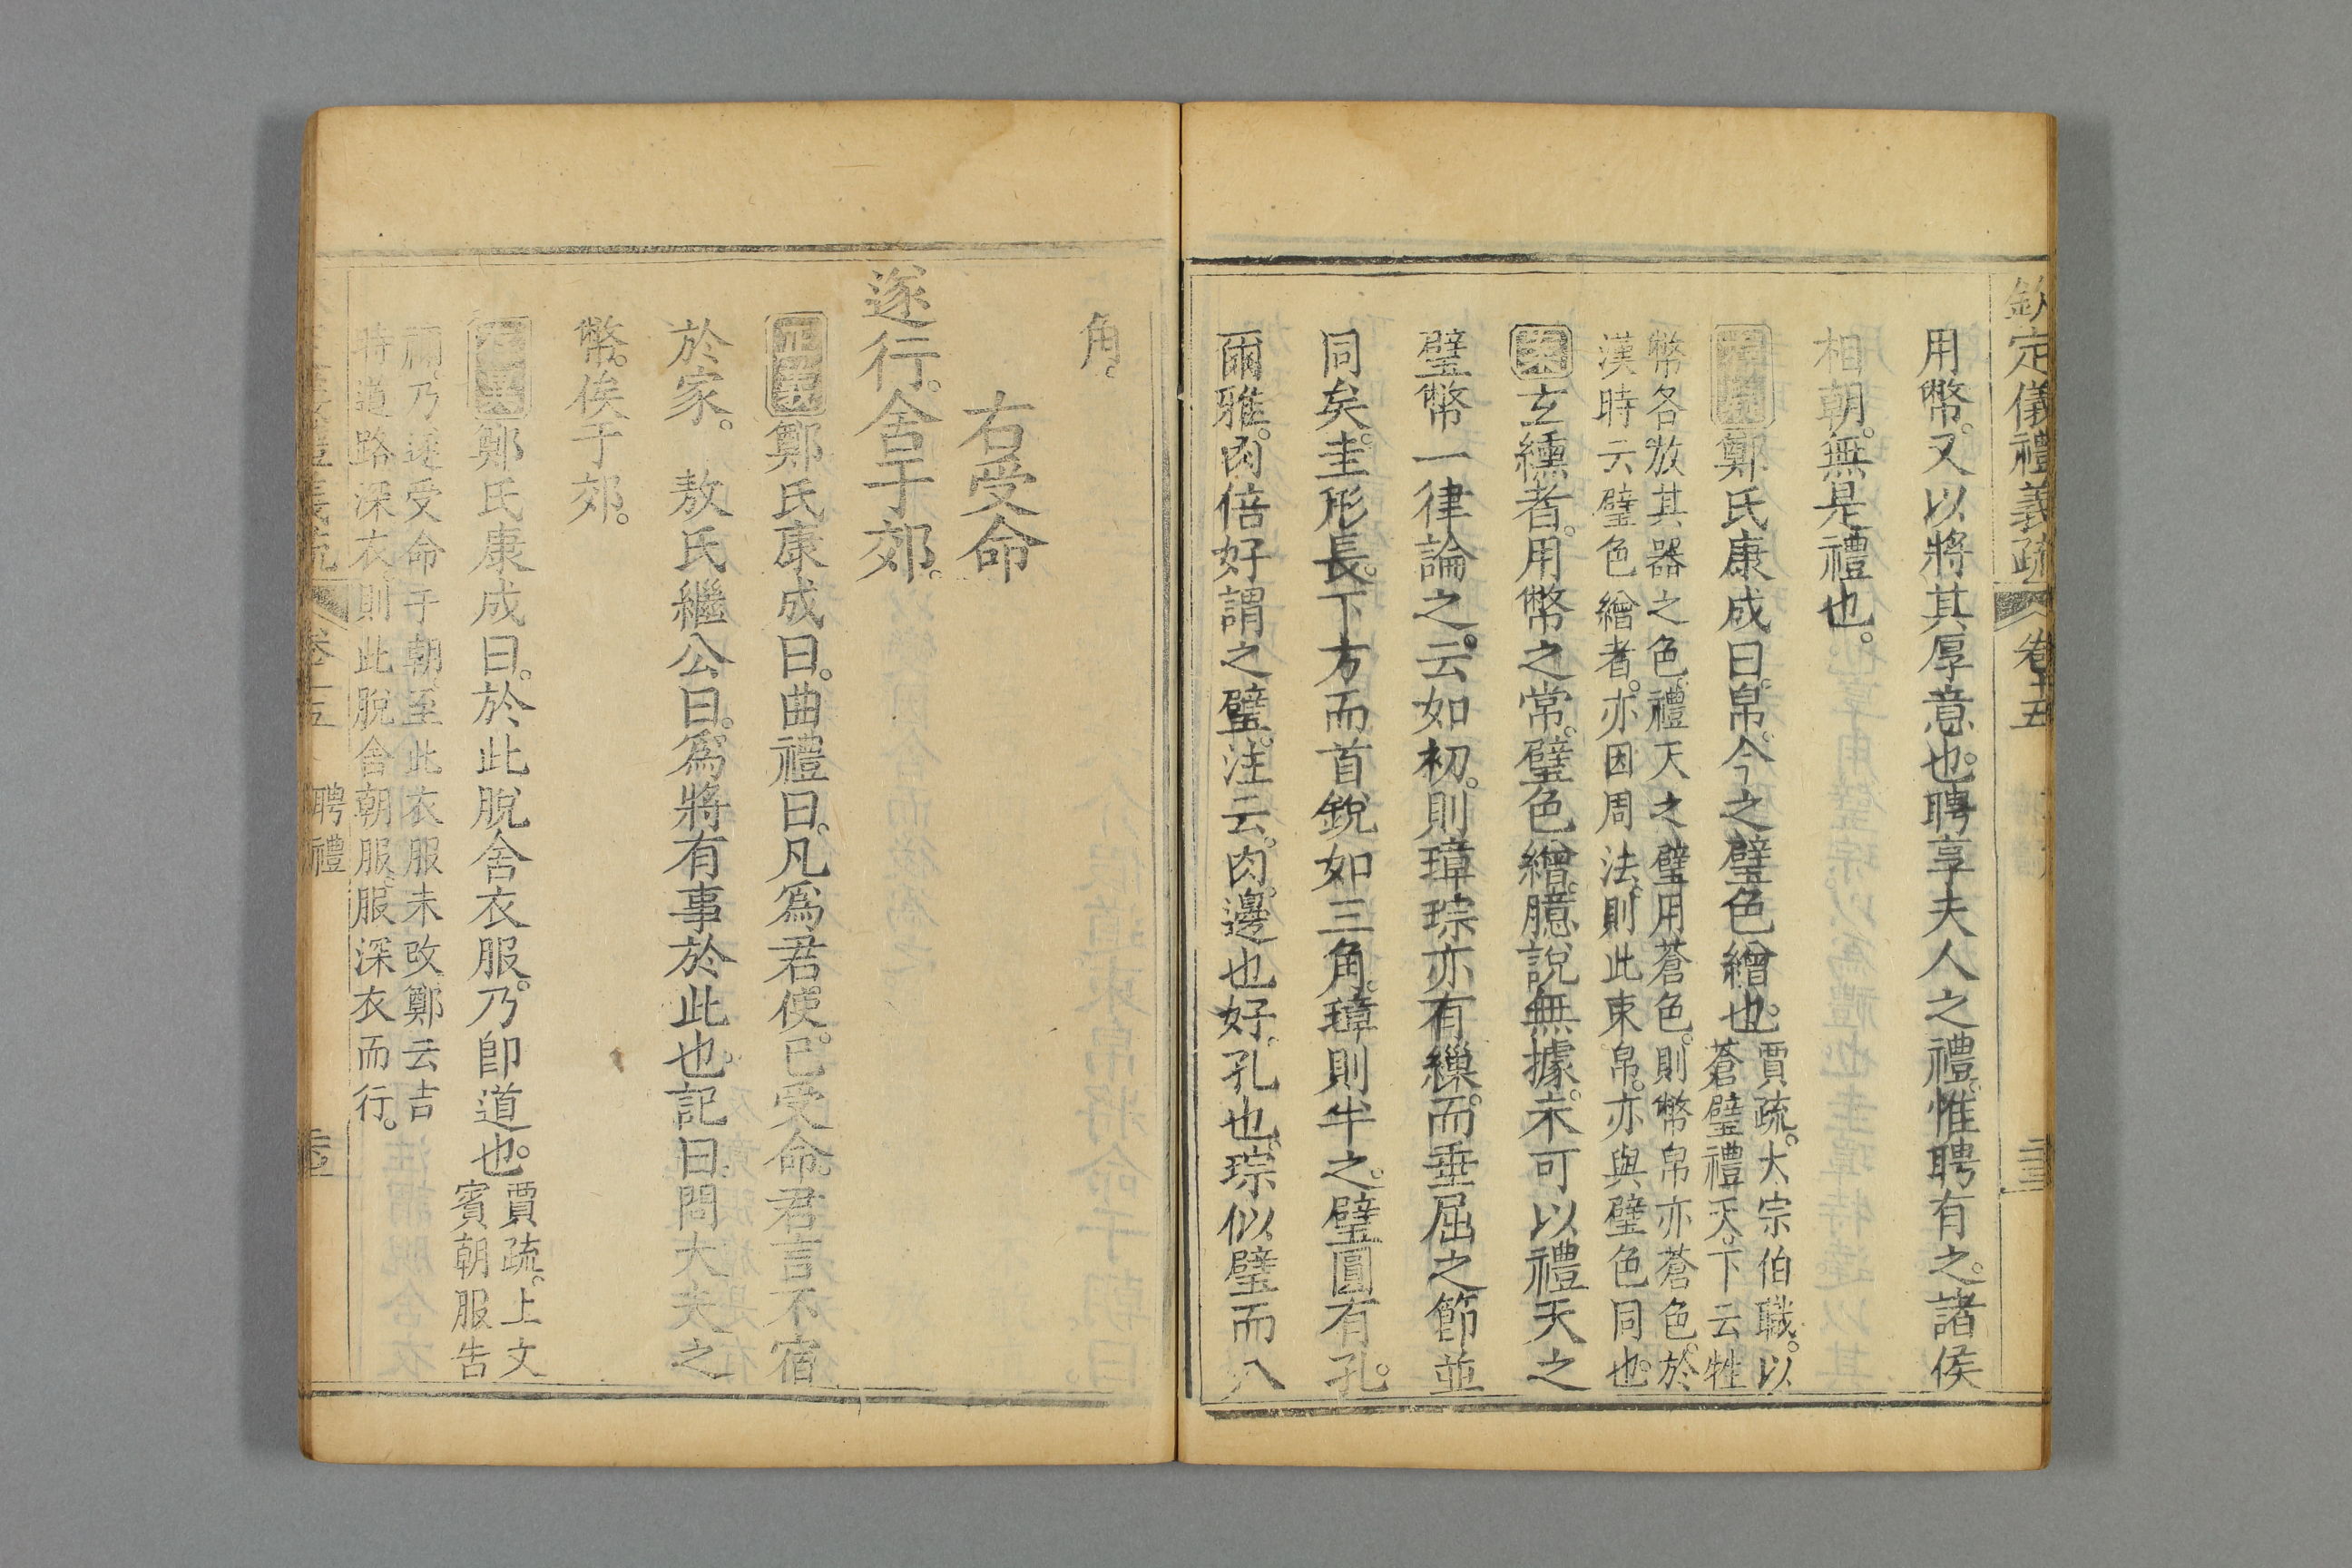 欽定儀禮義疏 卷十五
用幣。又以將其厚意也。聘享夫人之禮。惟聘有之。諸侯
相朝。無是禮也。
鄭氏康成曰。帛。今之璧色繒也。賈疏。大宗伯職。以
蒼璧禮天。下云牲
幣各放其器之色。禮天之璧用蒼色。則幣帛亦蒼色。於
漢時云璧色繒者。亦因周法。則此束帛。亦與璧色同也。
案玄纁者。用幣之常。璧色繒。臆說無據。未可以禮天之
璧幣一律論之。云如初。則璋琮亦有繅。而垂屈之節並
同矣。圭形長。下方而首銳如三角。璋則半之。璧圓有孔。
爾雅。肉倍好謂之璧。注云。肉。邊也。好。孔也。琮似璧而八
角。
右受命
遂行。舍于郊。
正義鄭氏康成曰。曲禮曰。凡爲君使。已受命。君言不宿
於家。 敖氏繼公曰。爲將有事於此也。記曰。問大夫之
幣。俟于郊。
正義鄭氏康成曰。於此脫舍衣服。乃卽道也。賈疏。上文
賓朝服告
禰。乃遂受命于朝。至此衣服未改。鄭云吉
時道路深衣。則此脫舍朝服。服深衣而行。
聘禮